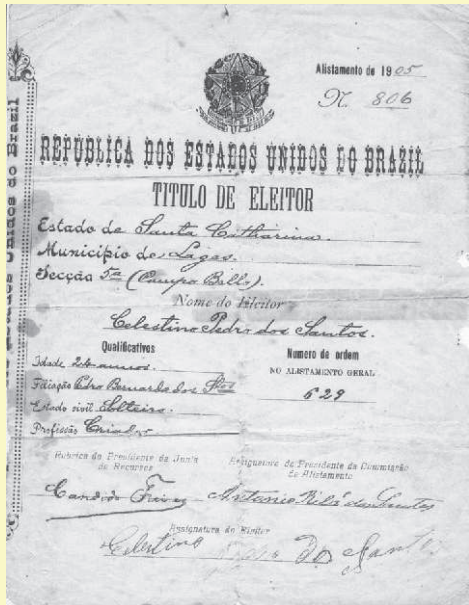 Alistamento de 1905
N. 806
REPUBLICA DOS ESTADOS UNIDOS DO BRAZIL
TITULO DE ELEITOR
Estado de Santa Catharina.
Municipio de Lages.
Secção 5ª (Campo Bello).
Nome do Eleitor
Celestino Pedro dos Santos.
Qualificativos
Idade 24 annos.
Filiação Pedro Bernardo dos Stos
Estado civil Solteiro.
Profissão Criador
Numero de ordem
NO ALISTAMENTO GERAL
629
Rubrica do Presidente da Junta
de Recursos
Assignatura do Presidente da Commissão
de Alistamento
Candido
Antonio dos Santos
Assignatura do Eleitor
Celestino Pedro Dos Santos
Unidos do Brazil